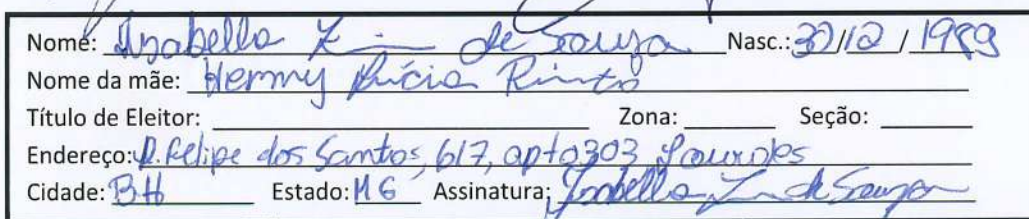 Nome: Isabella de Souza Nasc.: 30/12/1989
Nome da mãe: Hermy Lúcia
Título de Eleitor: Zona: Seção:
Endereço: R. Felipe dos Santos, 617, apto 303 Lourdes
Cidade: BH Estado: MG Assinatura: Isabella de Souza